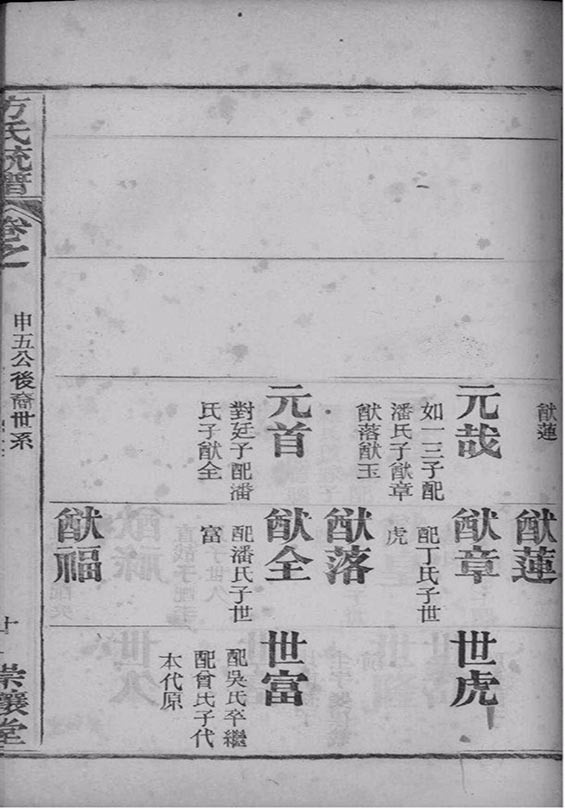 猷蓮
元哉
如一三子配
潘氏子猷章
猷落猷玉
元首
對廷子配潘
氏子猷全
猷蓮
猷章
配丁氏子世
虎
猷落
猷全
配潘氏子世
富
猷福
世虎
世富
配吳氏卒繼
配曾氏子代
本代原
方氏統譜
卷之一
申五公後裔世系
堂